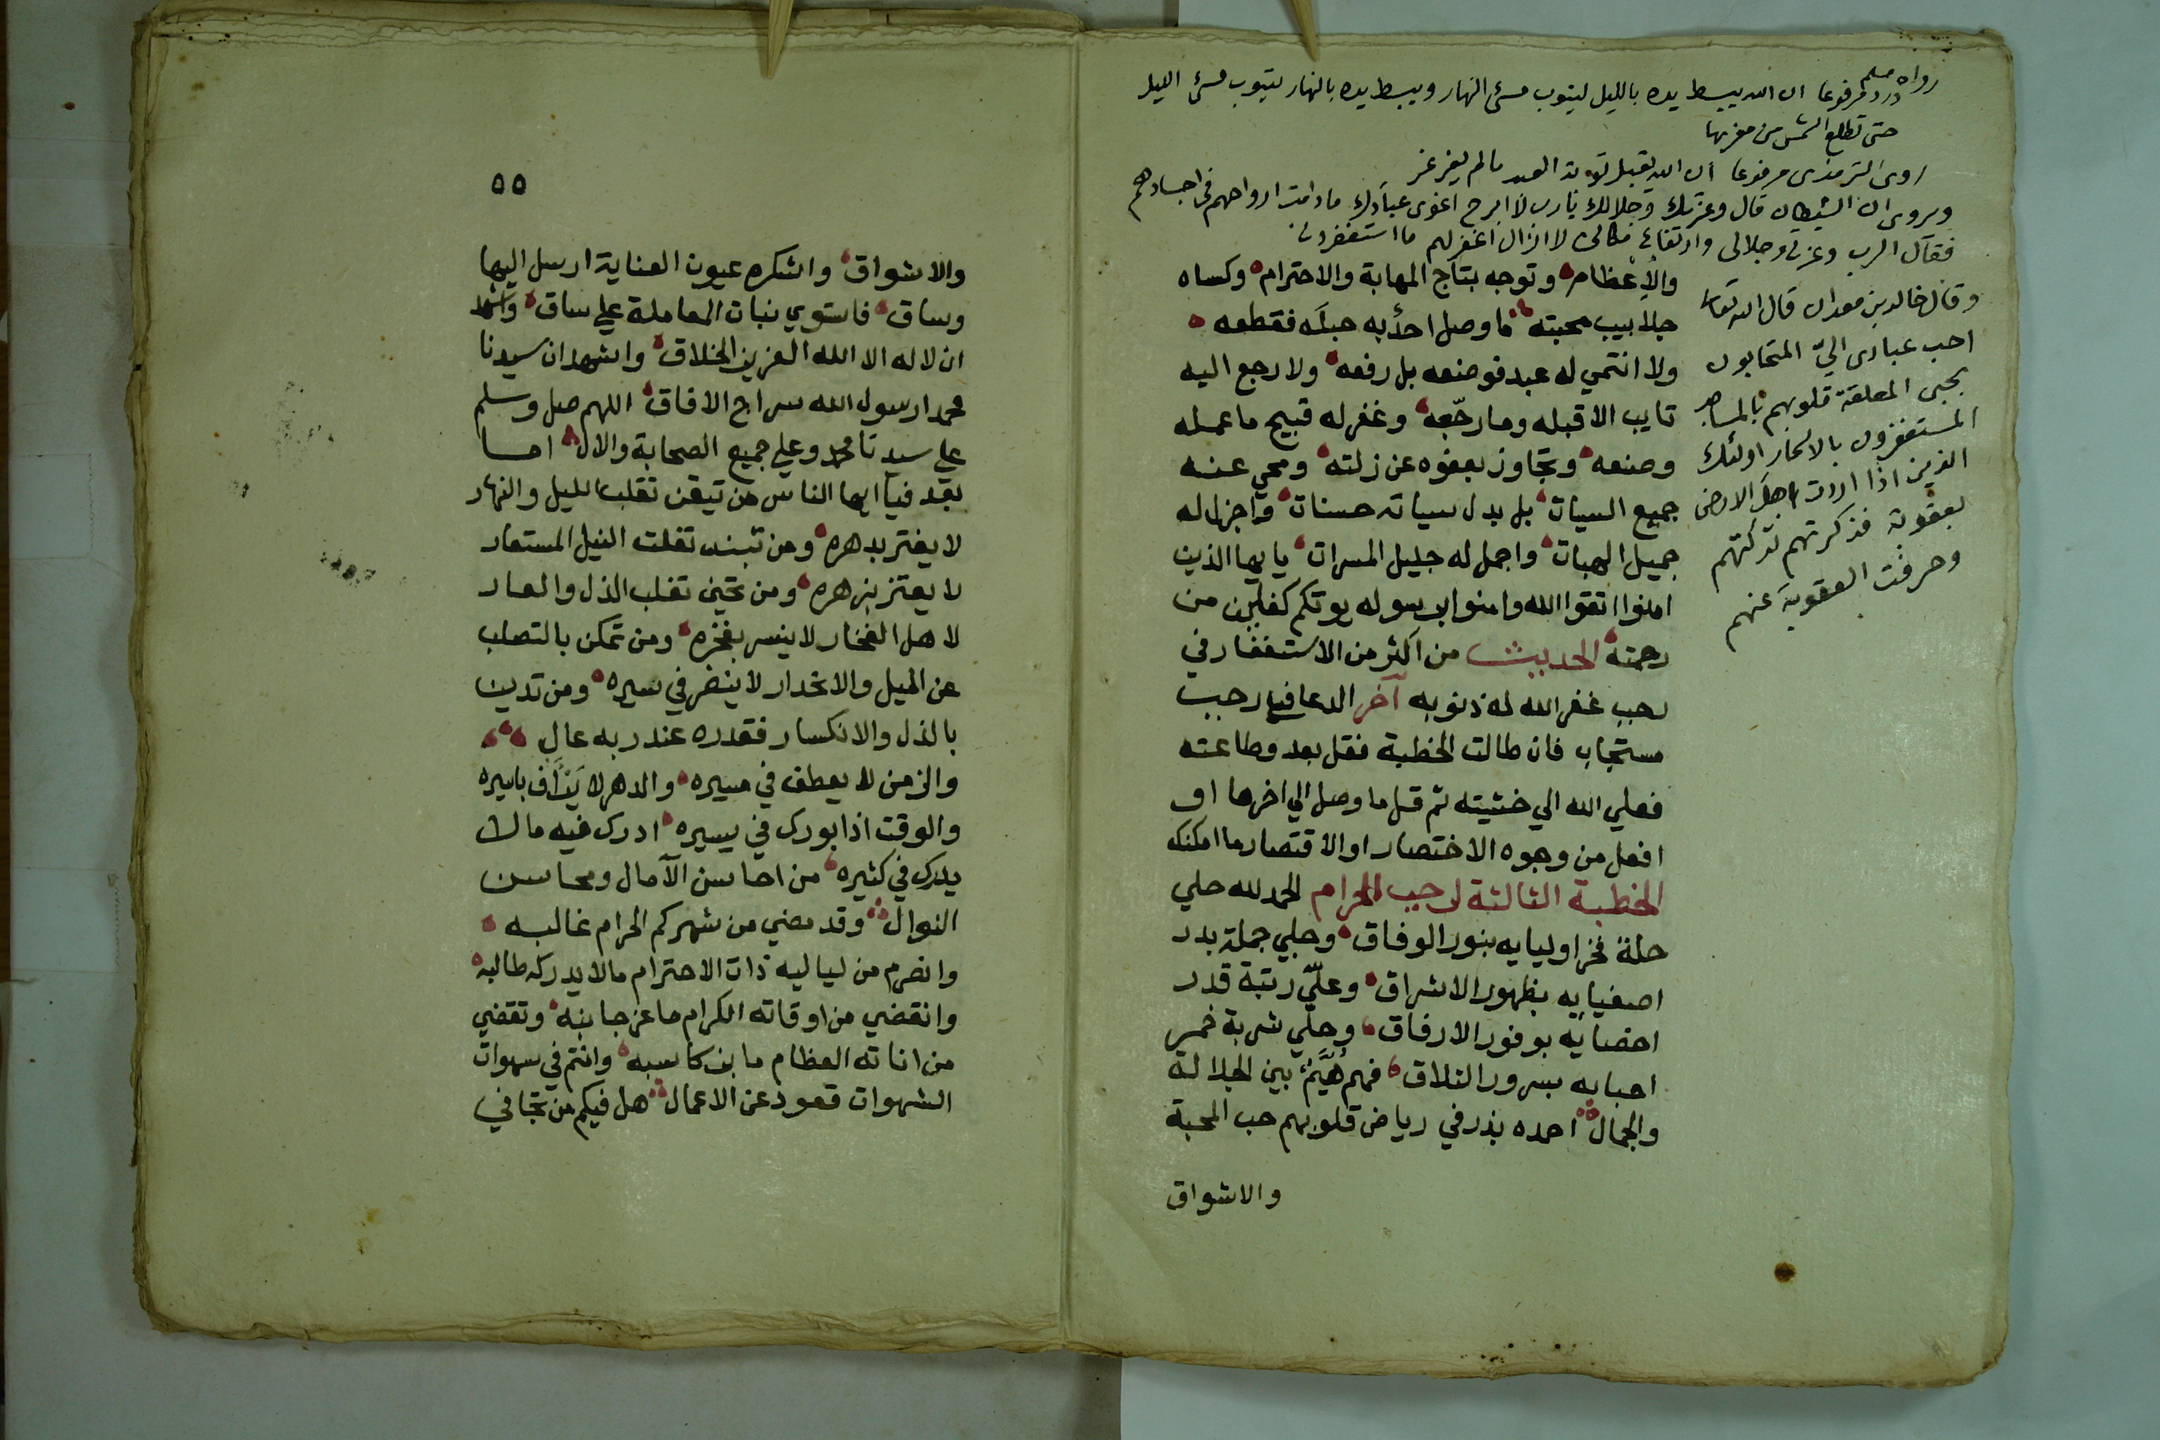 رواه مسلم
ورد مرفوعا ان الله يبسط يده بالليل ليتوب مسئ النهار ويبسط يده بالنهار ليتوب مسئ الليل
حتى تطلع الشمس من مغربها
روى الترمذى مرفوعا ان الله يقبل توبة العبد مالم يغرغر
ويروى ان الشيطان قال وعزتك وجلالك يا رب لا ابرح اغوى عبادك مادامت ارواحهم فى اجسادهم
فقال الرب وعزتى وجلالى وارتفاع مكانى لا ازال اغفر لهم ما استغفرونى
وقال خالد بن معدان قال الله تعالى
احب عبادى الىّ المتحابون
بحبى المعلقة قلوبهم بالمساجد
المستغفرون بالاسحار اولئك
الذين اذا اردت اهل الارض
بعقوبة فذكرتهم تركتهم
وصرفت العقوبة عنهم
والاعظام وتوجه بتاج المهابة والاحترام وكساه
جلابيب محبته ما وصل احد به حبله فقطعه
ولا انتمي له عبد فوضعه بل رفعه ولا رجع اليه
تايب الا قبله وما رجّعه وغفر له قبيح ما عمله
وصنعه وتجاوز بعفوه عن زلته ومحي عنه
جميع السيات بل بدل سياته حسنات واجزل له
جميل الهبات واجمل له جليل المسرات يايها الذين
امنوا اتقوا الله وامنوا برسوله يوتكم كفلين من
رحمته الحديث من اكثر من الاستغفار في
رجب غفر الله له ذنوبه آخر الدعا في رجب
مستجاب فان طالت الخطبة فقل بعد وطاعته
فعلي الله الي خشيته ثم قل ما وصل الي اخرها او
افعل من وجوه الاختصار او الاقتصار ما امكنك
الخطبة الثالثة لرجب الحرام الحمد لله حلي
حلة نخر اوليايه بنور الوفاق وجلي جملة بدر
اصفيايه بظهور الاشراق وعلّي رتبة قدر
اخصايه بوفور الارفاق وحلّي شربة خمر
احبابه بسرور التلاق فهم هُيَّم بين الجلالة
والجمال احمده بذر في رياض قلوبهم حب المحبة
والاشواق
٥٥
والاشواق واشكره عيون العناية ارسل اليها
وساق فاستوي نبات المعاملة علي ساق واشهد
ان لا اله الا الله العزيز الخلاق واشهد ان سيدنا
محمدا رسول الله سراج الافاق اللهم صل وسلم
علي سيدنا محمد وعلي جميع الصحابة والال اما
بعد فيا ايها الناس من تيقن تقلب الليل والنهار
لا يغتر بدهره ومن تفلت النيل المستعار
لا يعتز بزهره ومن تقلب الذل والعار
لاهل الفخار لا ينسر بفخره ومن تمكن بالتصلب
عن الميل والانحدار لا ينضر في سيره ومن تدين
بالذل والانكسار فقدره عند ربه عال
والزمن لا يعطف في مسيره والدهر لا باسيره
والوقت اذا بورك في يسيره ادرك فيه مالا
يدرك في كثيره من احاسن الآمال ومحاسن
النوال وقد مضي من شهركم الحرام غالبه
وانصرم من لياليه ذات الاحترام مالا يدركه طالبه
وانقضي من اوقاته الكرام ما عز جانبه وتقضي
من اناته العظام ما بكاسبه وانتم في سهوات
الشهوات قعود عن الاعمال هل فيكم من تجافي